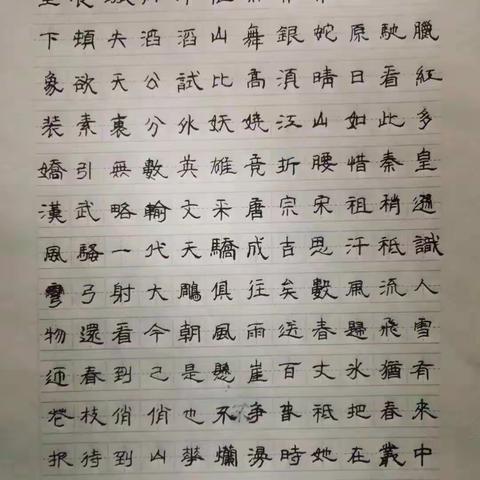 下頓失滔滔山舞銀蛇原馳臘
象欲天公試比高須晴日看紅
装素裹分外妖嬈江山如此多
嬌引無數英雄竞折腰惜秦皇
漢武略輸文采唐宗宋祖稍遜
風騷一代天驕成吉思汗祗識
彎弓射大鵰俱往矣數風流人
物還看今朝風雨送春歸飛雪
迎春到已是懸崖百丈冰猶有
花枝俏俏也不争春祗把春來
报待到山花爛漫時她在叢中